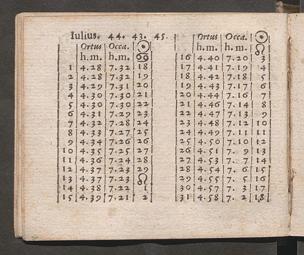 Iulius. 44. 43. 45.
Ortus Occa. ☉
h. m. h. m. ♋
1 4.28 7.32 18
2 4.28 7.32 19
3 4.30 7.30 20
4 4.30 7.30 21
5 4.31 7.29 22
6 4.32 7.28
7 4.32 7.28 24
8 4.33 7.27 25
9 4.34 7.26 26
10 4.35 7.25 27
11 4.36 7.24 28
12 4.37 7.23 29
13 4.37 7.23 ♌
14 4.38 7.22 1
15 4.39 7.21 2
Ortus Occa. ☉
h. m. h. m. ♌
16 4.40 7.20 3
17 4.41 7.19
18 4.42 7.18
19 4.43 7.17 6
20 4.44 7.16 7
21 4.46 7.14 8
22 4.47 7.13 9
23 4.48 7.12 10
24 4.49 7.11 11
25 4.50 7.10 12
26 4.51 7. 9 13
27 4.53 7. 7 14
28 4.54 7. 6 15
29 4.55 7. 5 16
30 4.57 7. 3 17
31 4.58 7. 2 18